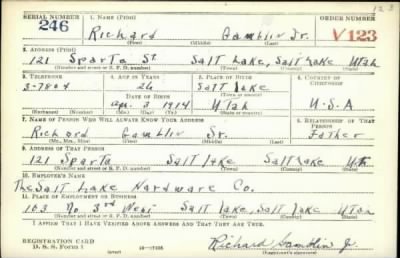 123
SERIAL NUMBER 1. NAME (Print) ORDER NUMBER
246 Richard Gamblin Jr. V123
(First) (Middle) (Last)
2. ADDRESS (Print)
121 Sparta St. Salt Lake, Salt Lake Utah
(Number and street or R. F. D. number) (Town) (County) (State)
3. TELEPHONE 4. AGE IN YEARS 5. PLACE OF BIRTH 6. COUNTRY OF CITIZENSHIP
5-7804 26 Salt Lake
DATE OF BIRTH
Apr. 3 1914 Utah U.S.A
(Exchange) (Number) (Mo.) (Day) (Yr.) (State or country)
7. NAME OF PERSON WHO WILL ALWAYS KNOW YOUR ADDRESS 8. RELATIONSHIP OF THAT PERSON
Richard Gamblin Sr. Father
(Mr., Mrs., Miss) (First) (Middle) (Last)
9. ADDRESS OF THAT PERSON
121 Sparta Salt Lake Salt Lake Ut.
(Number and street or R. F. D. number) (Town) (County) (State)
10. EMPLOYER'S NAME
The Salt Lake Hardware Co.
11. PLACE OF EMPLOYMENT OR BUSINESS
105 No 3rd West Salt Lake, Salt Lake Utah
(Number and street or R. F. D. number) (Town) (County) (State)
I AFFIRM THAT I HAVE VERIFIED ABOVE ANSWERS AND THAT THEY ARE TRUE.
REGISTRATION CARD
D. S. S. Form 1 (over) Richard Gamblin Jr.
(Registrant's signature)